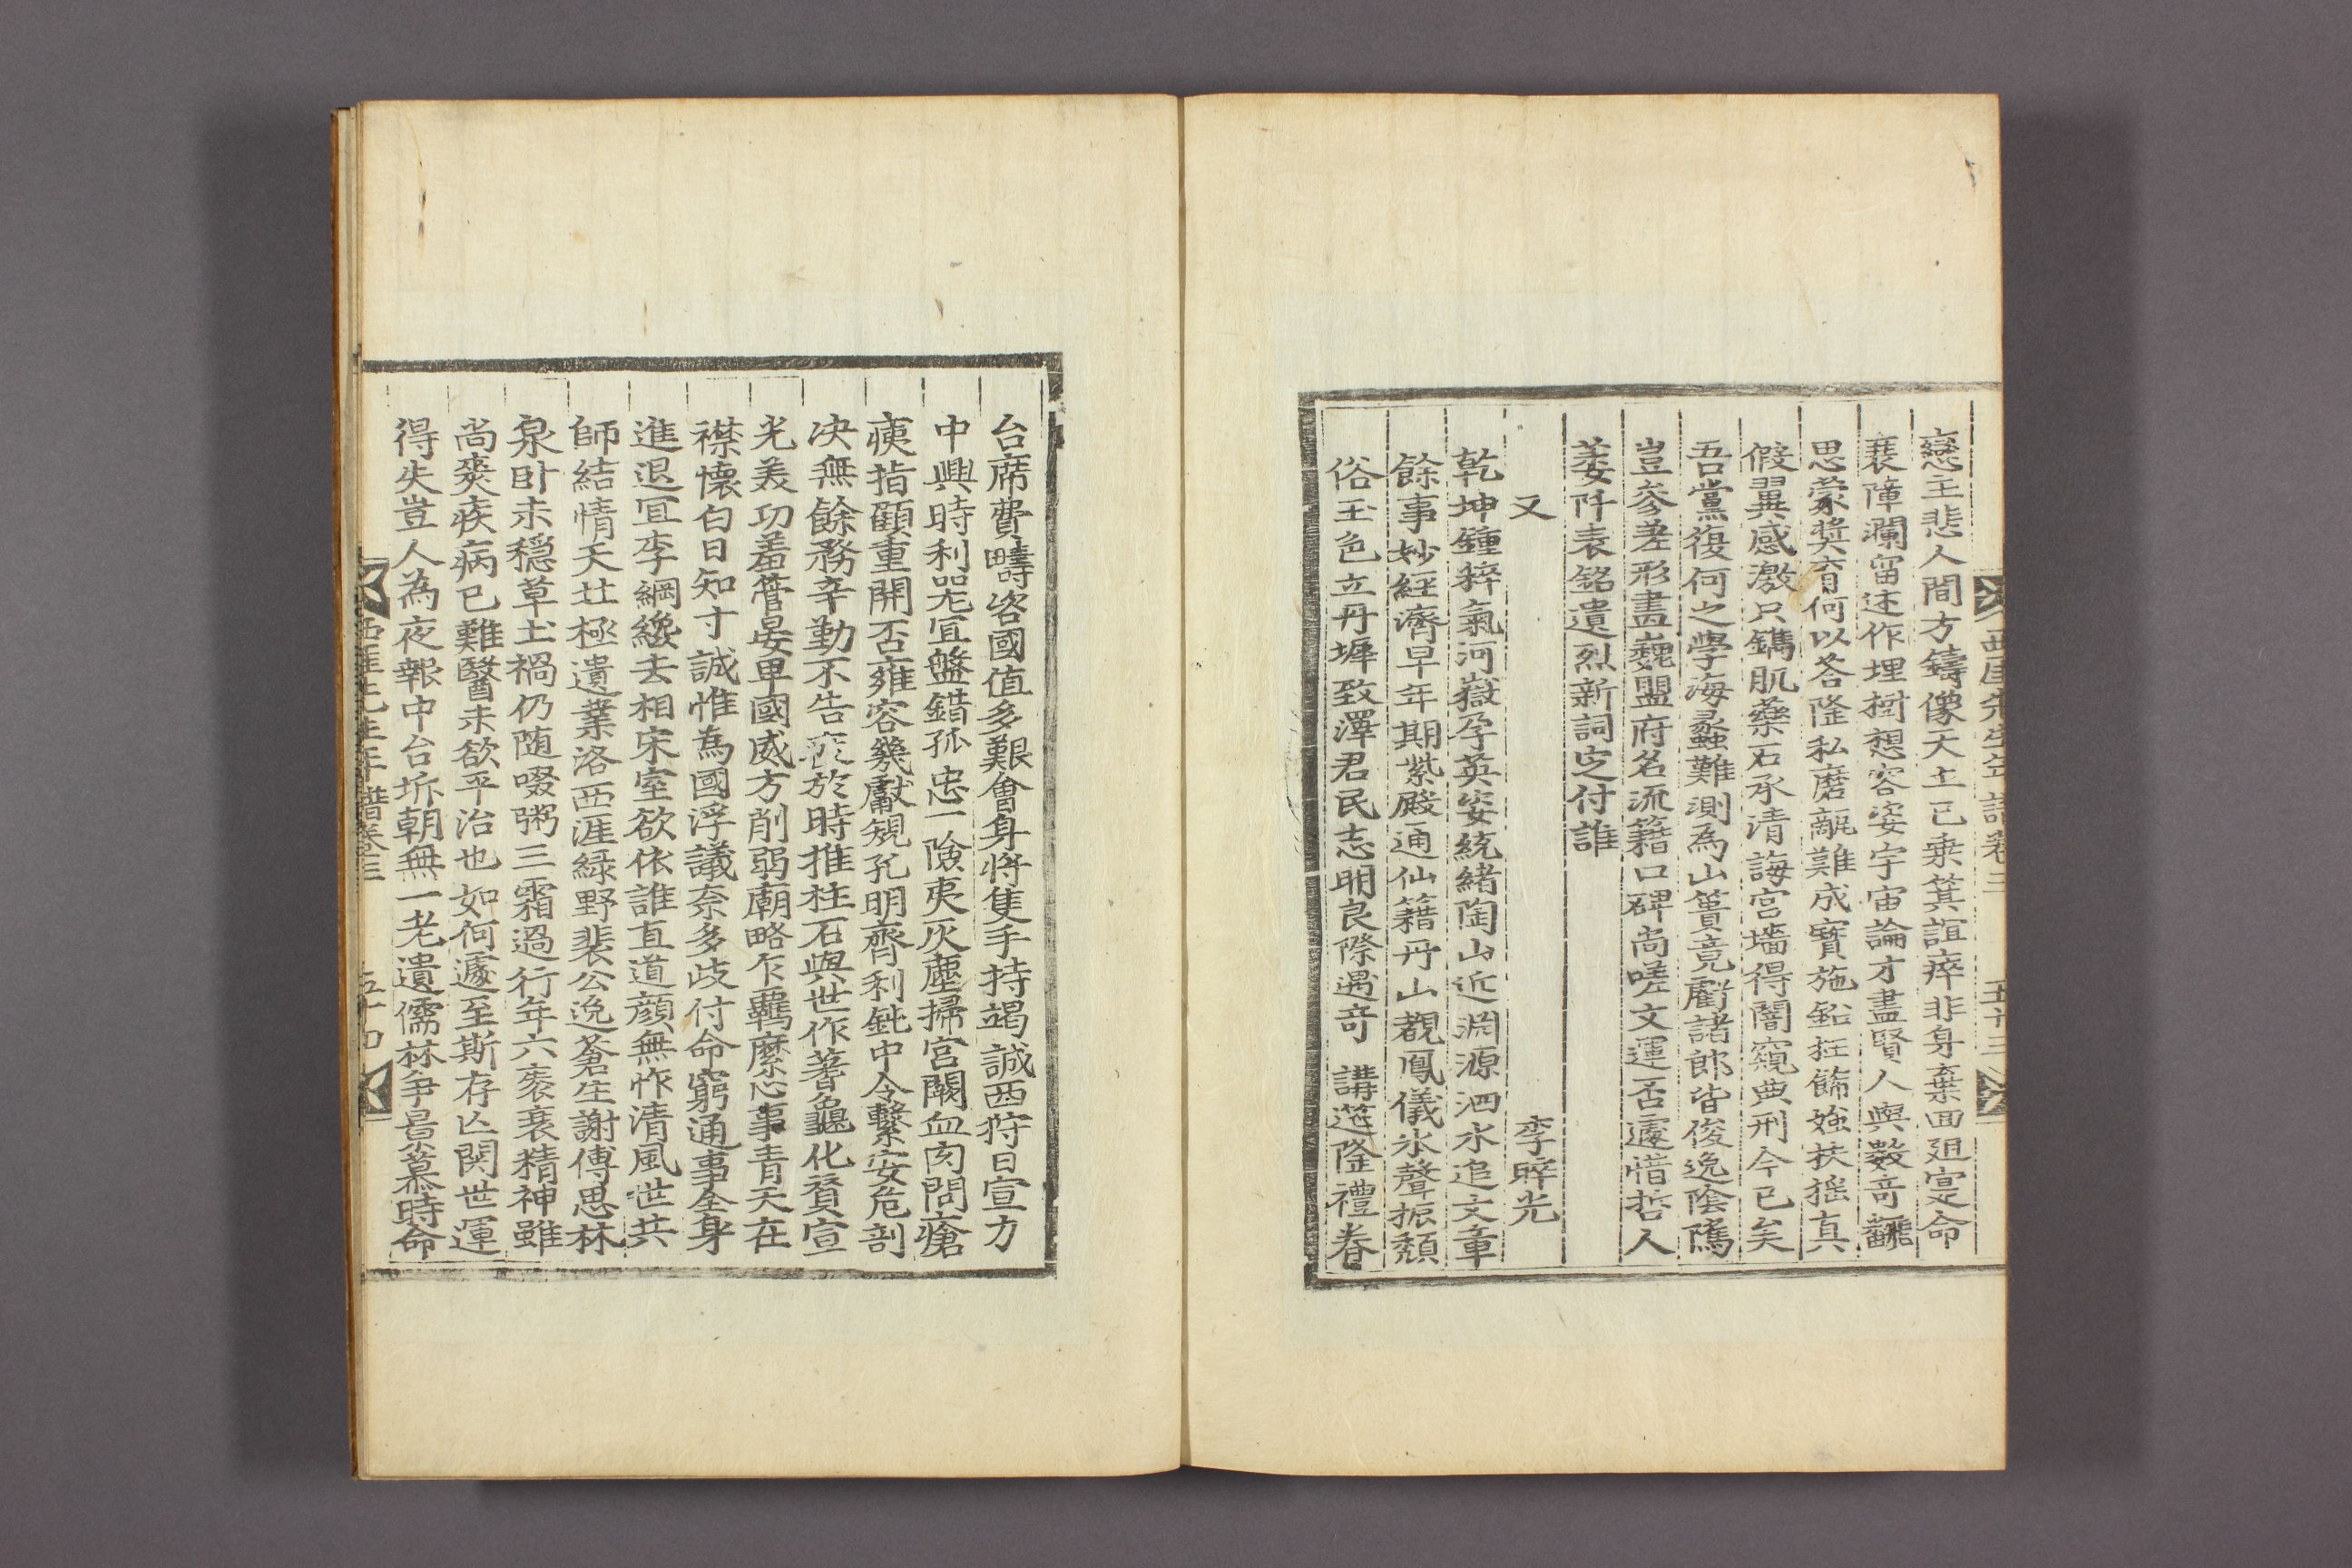 西厓先生年譜卷三 五十三
戀主悲人間方鑄像天上已乗箕誼瘁非身棄回遑寔命
衰障瀾留述作埋樹想容姿宇宙論才盡賢人與數奇飜
思蒙奬育何以答隆私磨瓿難成寶施鉛抂餙媸扶搖真
假翼感激只鐫肌藥石承清誨宮墻得闇窺典刑今已矣
吾黨復何之學海蠡難測為山簣竟虧諸郎皆俊逸陰隲
豈參差形畫巍盟府名流籍口碑尚嗟文運否遽惜哲人
萎阡表銘遺烈新詞㝎付誰
又 李晬光
乾坤鍾粹氣河嶽孕英姿統緒陶山近淵源泗水追文章
餘事妙經濟早年期紫殿通仙籍丹山覩鳳儀氷聲振頹
俗玉色立丹墀致澤君民志明良際遇奇 講筵隆禮眷
台席費疇咨國值多艱會身将隻手持竭誠西狩日宣力
中興時利器冝盤錯孤忠一險夷灰塵掃宮闕血肉問瘡
痍指顧重開否雍容幾獻䂓孔明齊利鈍中令繫安危剖
决無餘務辛勤不告疲於時推柱石與世作蓍龜化賛宣
光美功羞管晏卑國威方削弱廟略乍覊縻心事青天在
襟懷白日知寸誠惟為國浮議奈多歧付命窮通事全身
進退冝李綱纔去相宋室欲依誰直道顏無怍清風世共
師結情天壯極遺業洛西涯緑野裴公逸蒼生謝傅思林
泉卧未穏草土禍仍随啜粥三霜過行年六袠衰精神雖
尚爽疾病已難醫未欲平治也如何遽至斯存亾関世運
得失豈人為夜報中台坼朝無一老遺儒林爭景慕時命
西厓先生年譜卷三 五十四